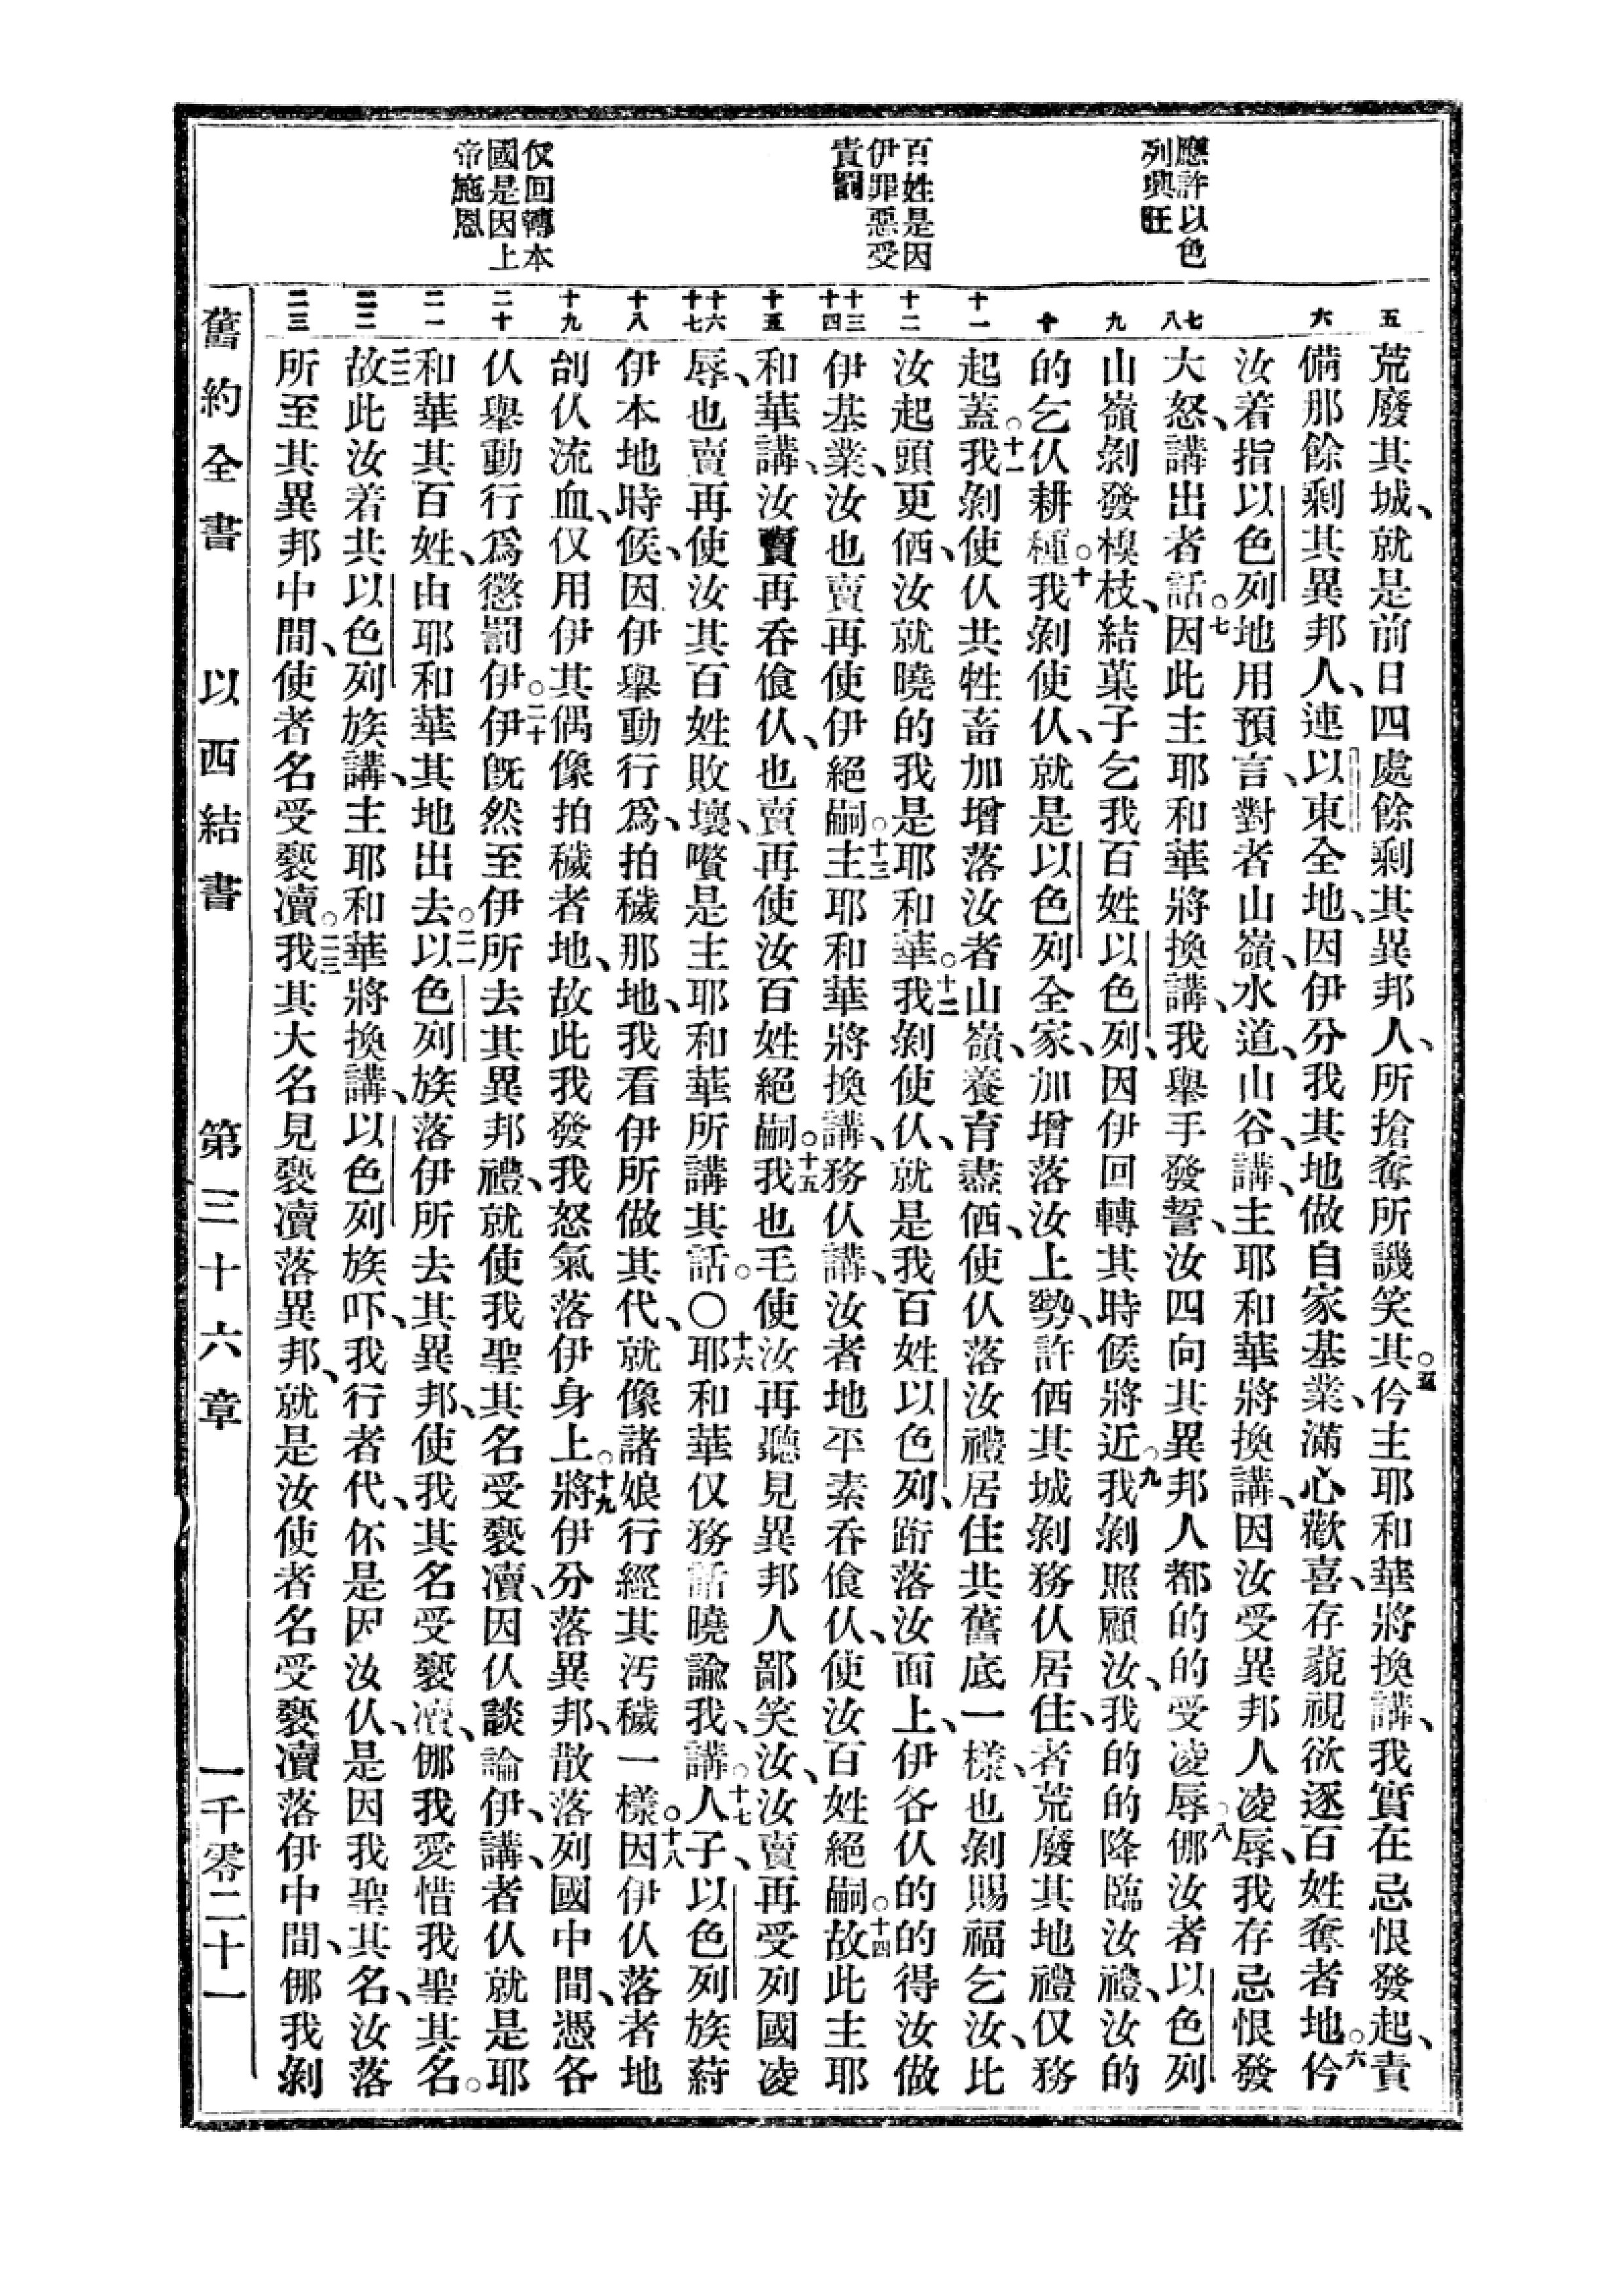 應許以色
列興旺
百姓是因
伊罪惡受
責罰
仅回轉本
國是因上
帝施恩
五
六
七
八
九
十
十一
十二
十三
十四
十五
十六
十七
十八
十九
二十
二一
二二
二三
荒廢其城、就是前日四處餘剩其異邦人、所搶奪所譏笑其。五仱主耶和華將換講、我實在忌恨發起、責
備那餘剩其異邦人、連以東全地、因伊分我其地做自家基業、滿心歡喜、存藐視欲逐百姓奪者地。六仱
汝着指以色列地用預言、對者山嶺、水道、山谷、講、主耶和華將換講、因汝受異邦人凌辱、我存忌恨發
大怒、講出者話。七因此主耶和華將換講、我舉手發誓、汝四向其異邦人都的的受凌辱。八㑚汝者以色列
山嶺剝發椇枝、結菓子乞我百姓以色列、因伊回轉其時候將近。九我剝照顧汝、我的的降臨汝禮、汝的
的乞仈耕種。十我剝使仈、就是以色列全家、加增落汝上勢、許価其城剝務仈居住、者荒廢其地禮仅務
起蓋。十一我剝使仈共牲畜加增落汝者山嶺、養育盡価、使仈落汝禮居住共舊底一樣、也剝賜福乞汝、比
汝起頭更価、汝就曉的我是耶和華。十二我剝使仈、就是我百姓以色列、跴落汝面上、伊各仈的的得汝做
伊基業、汝也賣再使伊絕嗣。十三主耶和華將換講、務仈講、汝者地平素吞飡仈、使汝百姓絕嗣。十四故此主耶
和華講、汝賣再吞飡仈、也賣再使汝百姓絕嗣。十五我也毛使汝再聽見異邦人鄙笑汝、汝賣再受列國凌
辱、也賣再使汝其百姓敗壞、嚽是主耶和華所講其話。〇十六耶和華仅務話曉諭我、講。十七人子、以色列族葤
伊本地時候、因伊舉動行爲、拍穢那地、我看伊所做其代、就像諸娘行經其汚穢一樣。十八因伊仈落者地
刣仈流血、仅用伊其偶像拍穢者地、故此我發我怒氣落伊身上。十九將伊分落異邦、散落列國中間、憑各
仈舉動行爲懲罰伊。二十伊旣然至伊所去其異邦禮、就使我聖其名受褻瀆、因仈談論伊、講、者仈就是耶
和華其百姓、由耶和華其地出去。二一以色列族落伊所去其異邦、使我其名受褻瀆、㑚我愛惜我聖其名。
二二故此汝着共以色列族講、主耶和華將換講、以色列族吓、我行者代、伓是因汝仈、是因我聖其名、汝落
所至其異邦中間、使者名受褻瀆。二三我其大名見褻瀆落異邦、就是汝使者名受褻瀆落伊中間、㑚我剝
舊約全書　以西結書　第三十六章　一千零二十一